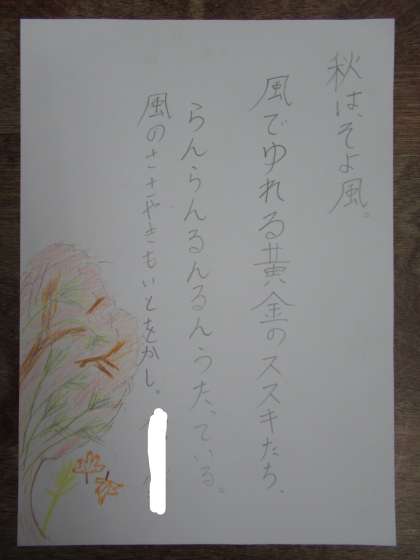 秋は、そよ風。
風でゆれる黄金のススキたち、
らんらんるんるんうたっている。
風のささやきもいとをかし。